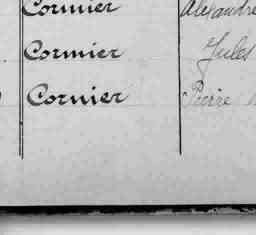 Cormier Alexandre
Cormier Jules
Cormier Pierre